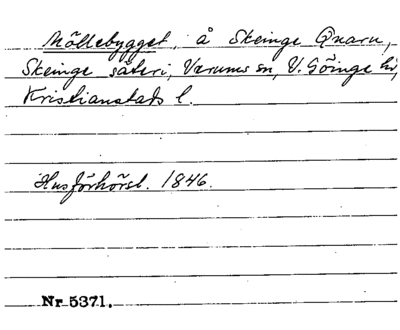 Möllebygget, å Skeinge Qvarn,
Skeinge säteri, Verums sn, V. Göinge hd,
Kristianstads l.
Husförhörsl. 1846.
Nr 5371.